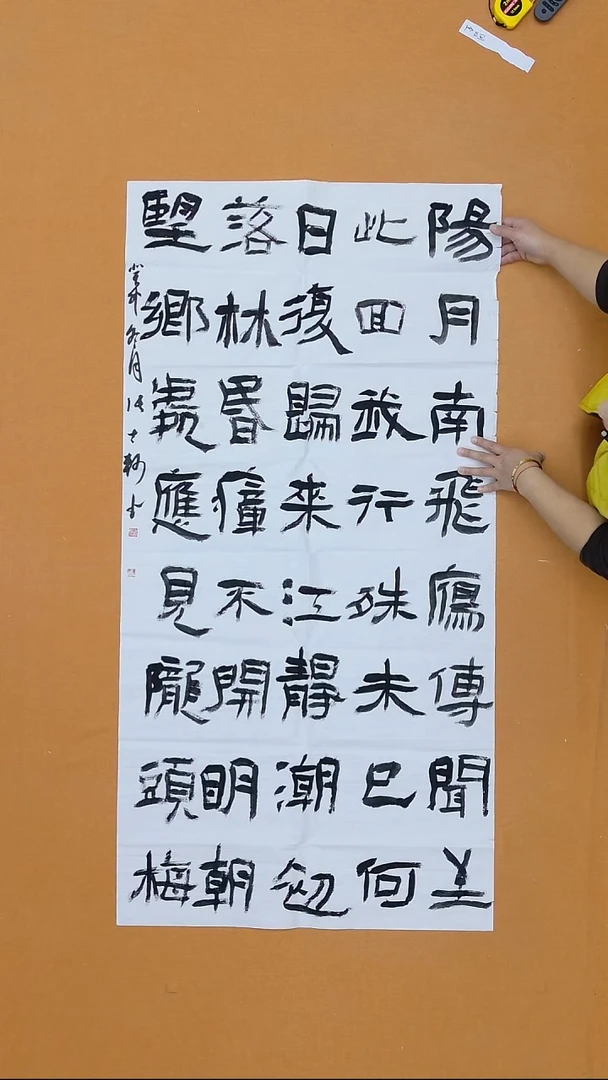 陽月南飛鴈傳聞至
此回我行殊未已何
日復歸来江靜潮初
落林昬瘴不開眀朝
望鄉處應見隴頭梅
冬月